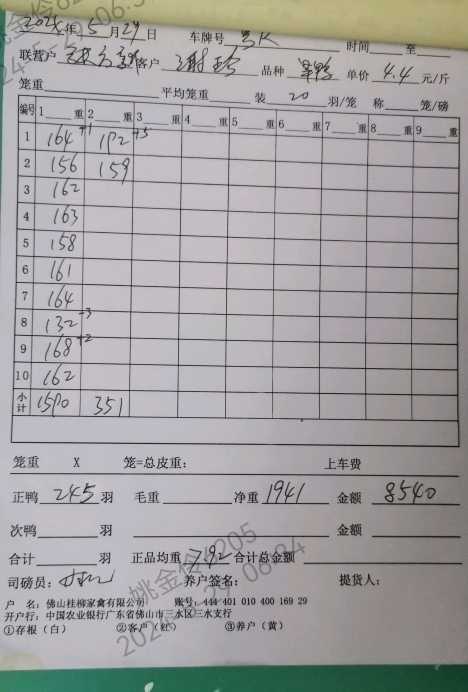 2024年5月29日 车牌号 时间 至
联营户 客户 谢玲 品种 单价 4.4 元/斤
笼重 平均笼重 装 20 羽/笼 称 笼/磅
编号 1 重 2 重 3 重 4 重 5 重 6 重 7 重 8 重 9 重
1 164 +1 192 +5
2 156 159
3 162
4 163
5 158
6 161
7 164
8 132 -3
9 168 +2
10 162
小计 1590 351
笼重 X 笼=总皮重： 上车费
正鸭 245 羽 毛重 净重 1941 金额 8540
次鸭 羽 金额
合计 羽 正品均重 7.92 合计总金额
司磅员： 养户签名： 提货人：
户 名：佛山桂柳家禽有限公司 账号：444 401 010 400 169 29
开户行：中国农业银行广东省佛山市三水区三水支行
①存根（白） ②客户（红） ③养户（黄）
姚金伶6205